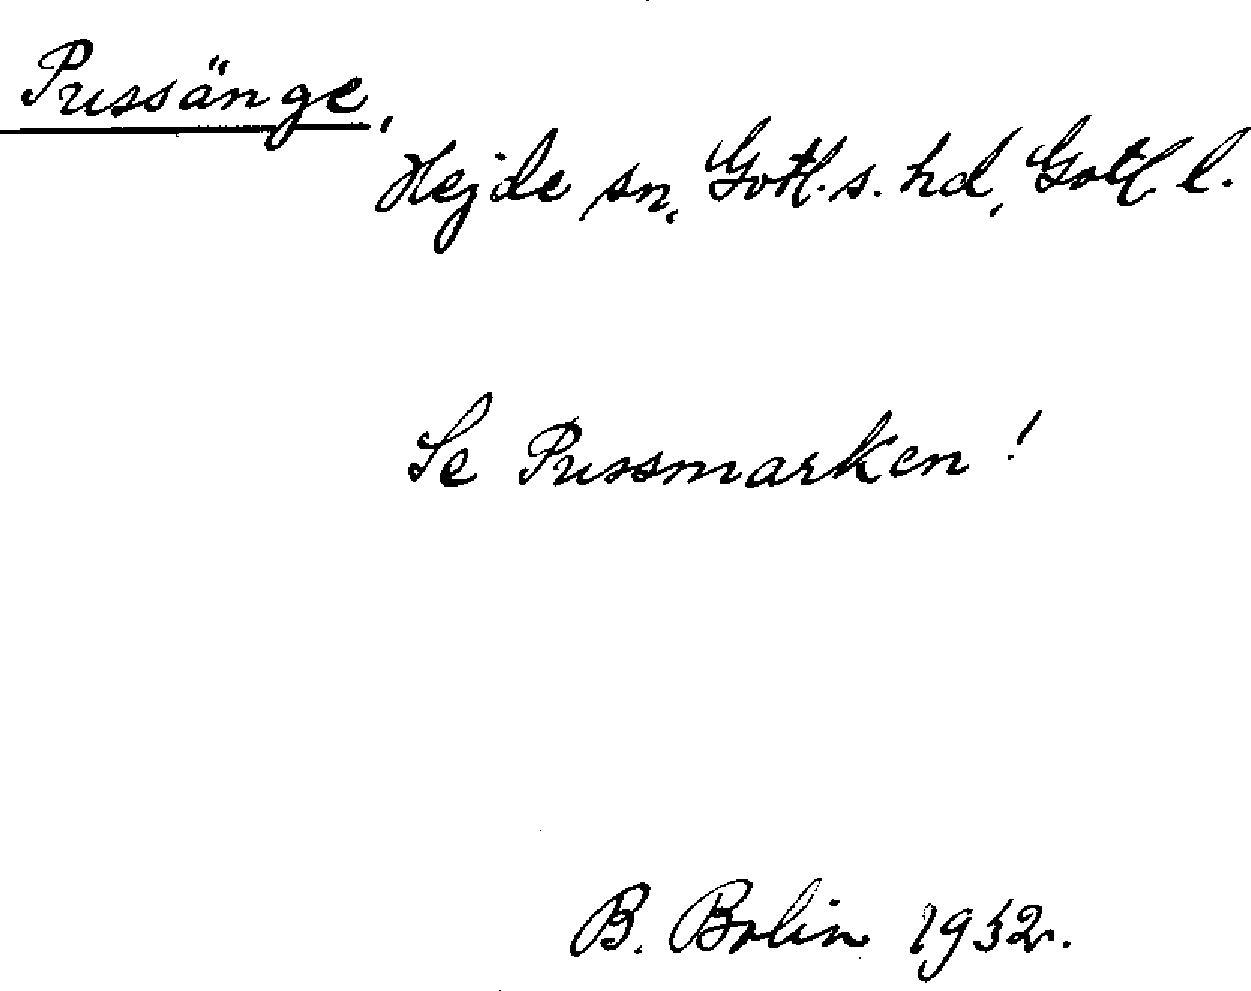 Pussänge,
Hejde sn, Gotl. s. hd, Gotl. l.
Se Pussmarken!
B. Bolin 1932.